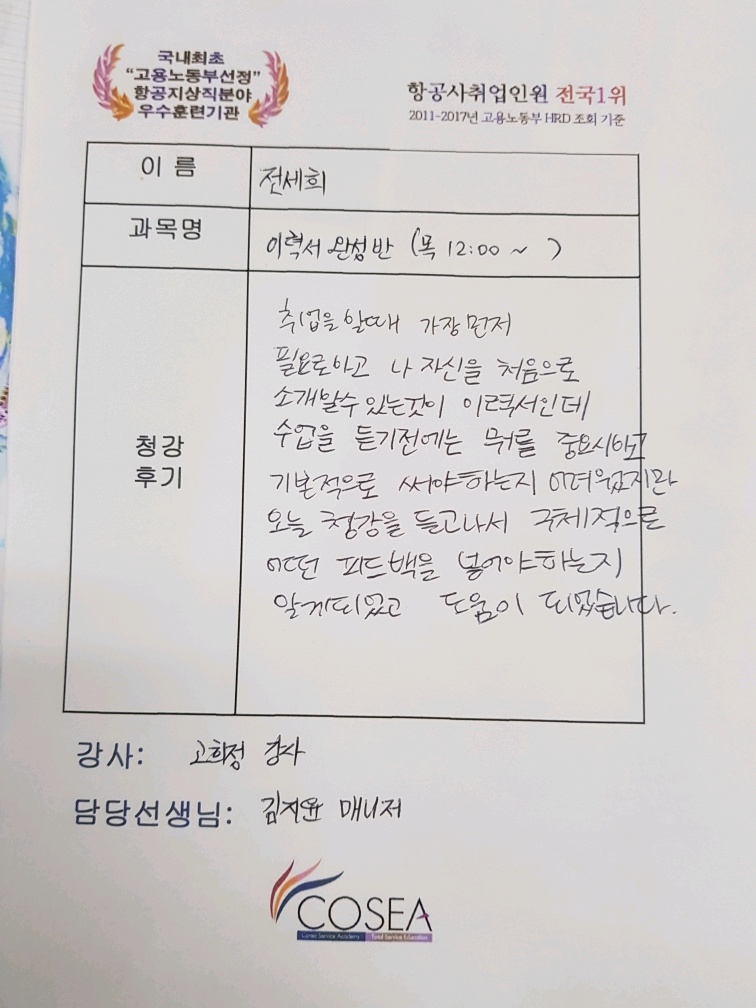 국내최초
"고용노동부선정"
항공지상직분야
우수훈련기관
항공사취업인원 전국1위
2011-2017년 고용노동부 HRD 조회 기준
이 름
전세희
과목명
이력서 완성반 (목 12:00 ~ )
청강
후기
취업을 할때 가장먼저
필요로하고 나 자신을 처음으로
소개할수 있는것이 이력서인데
수업을 듣기전에는 뭐를 중요시하고
기본적으로 써야하는지 어려웠지만
오늘 청강을 듣고나서 구체적으로
어떤 피드백을 넣어야하는지
알게되었고 도움이 되었습니다.
강사: 고희정 강사
담당선생님: 김지윤 매니저
COSEA
Career Service Academy Total Service Education